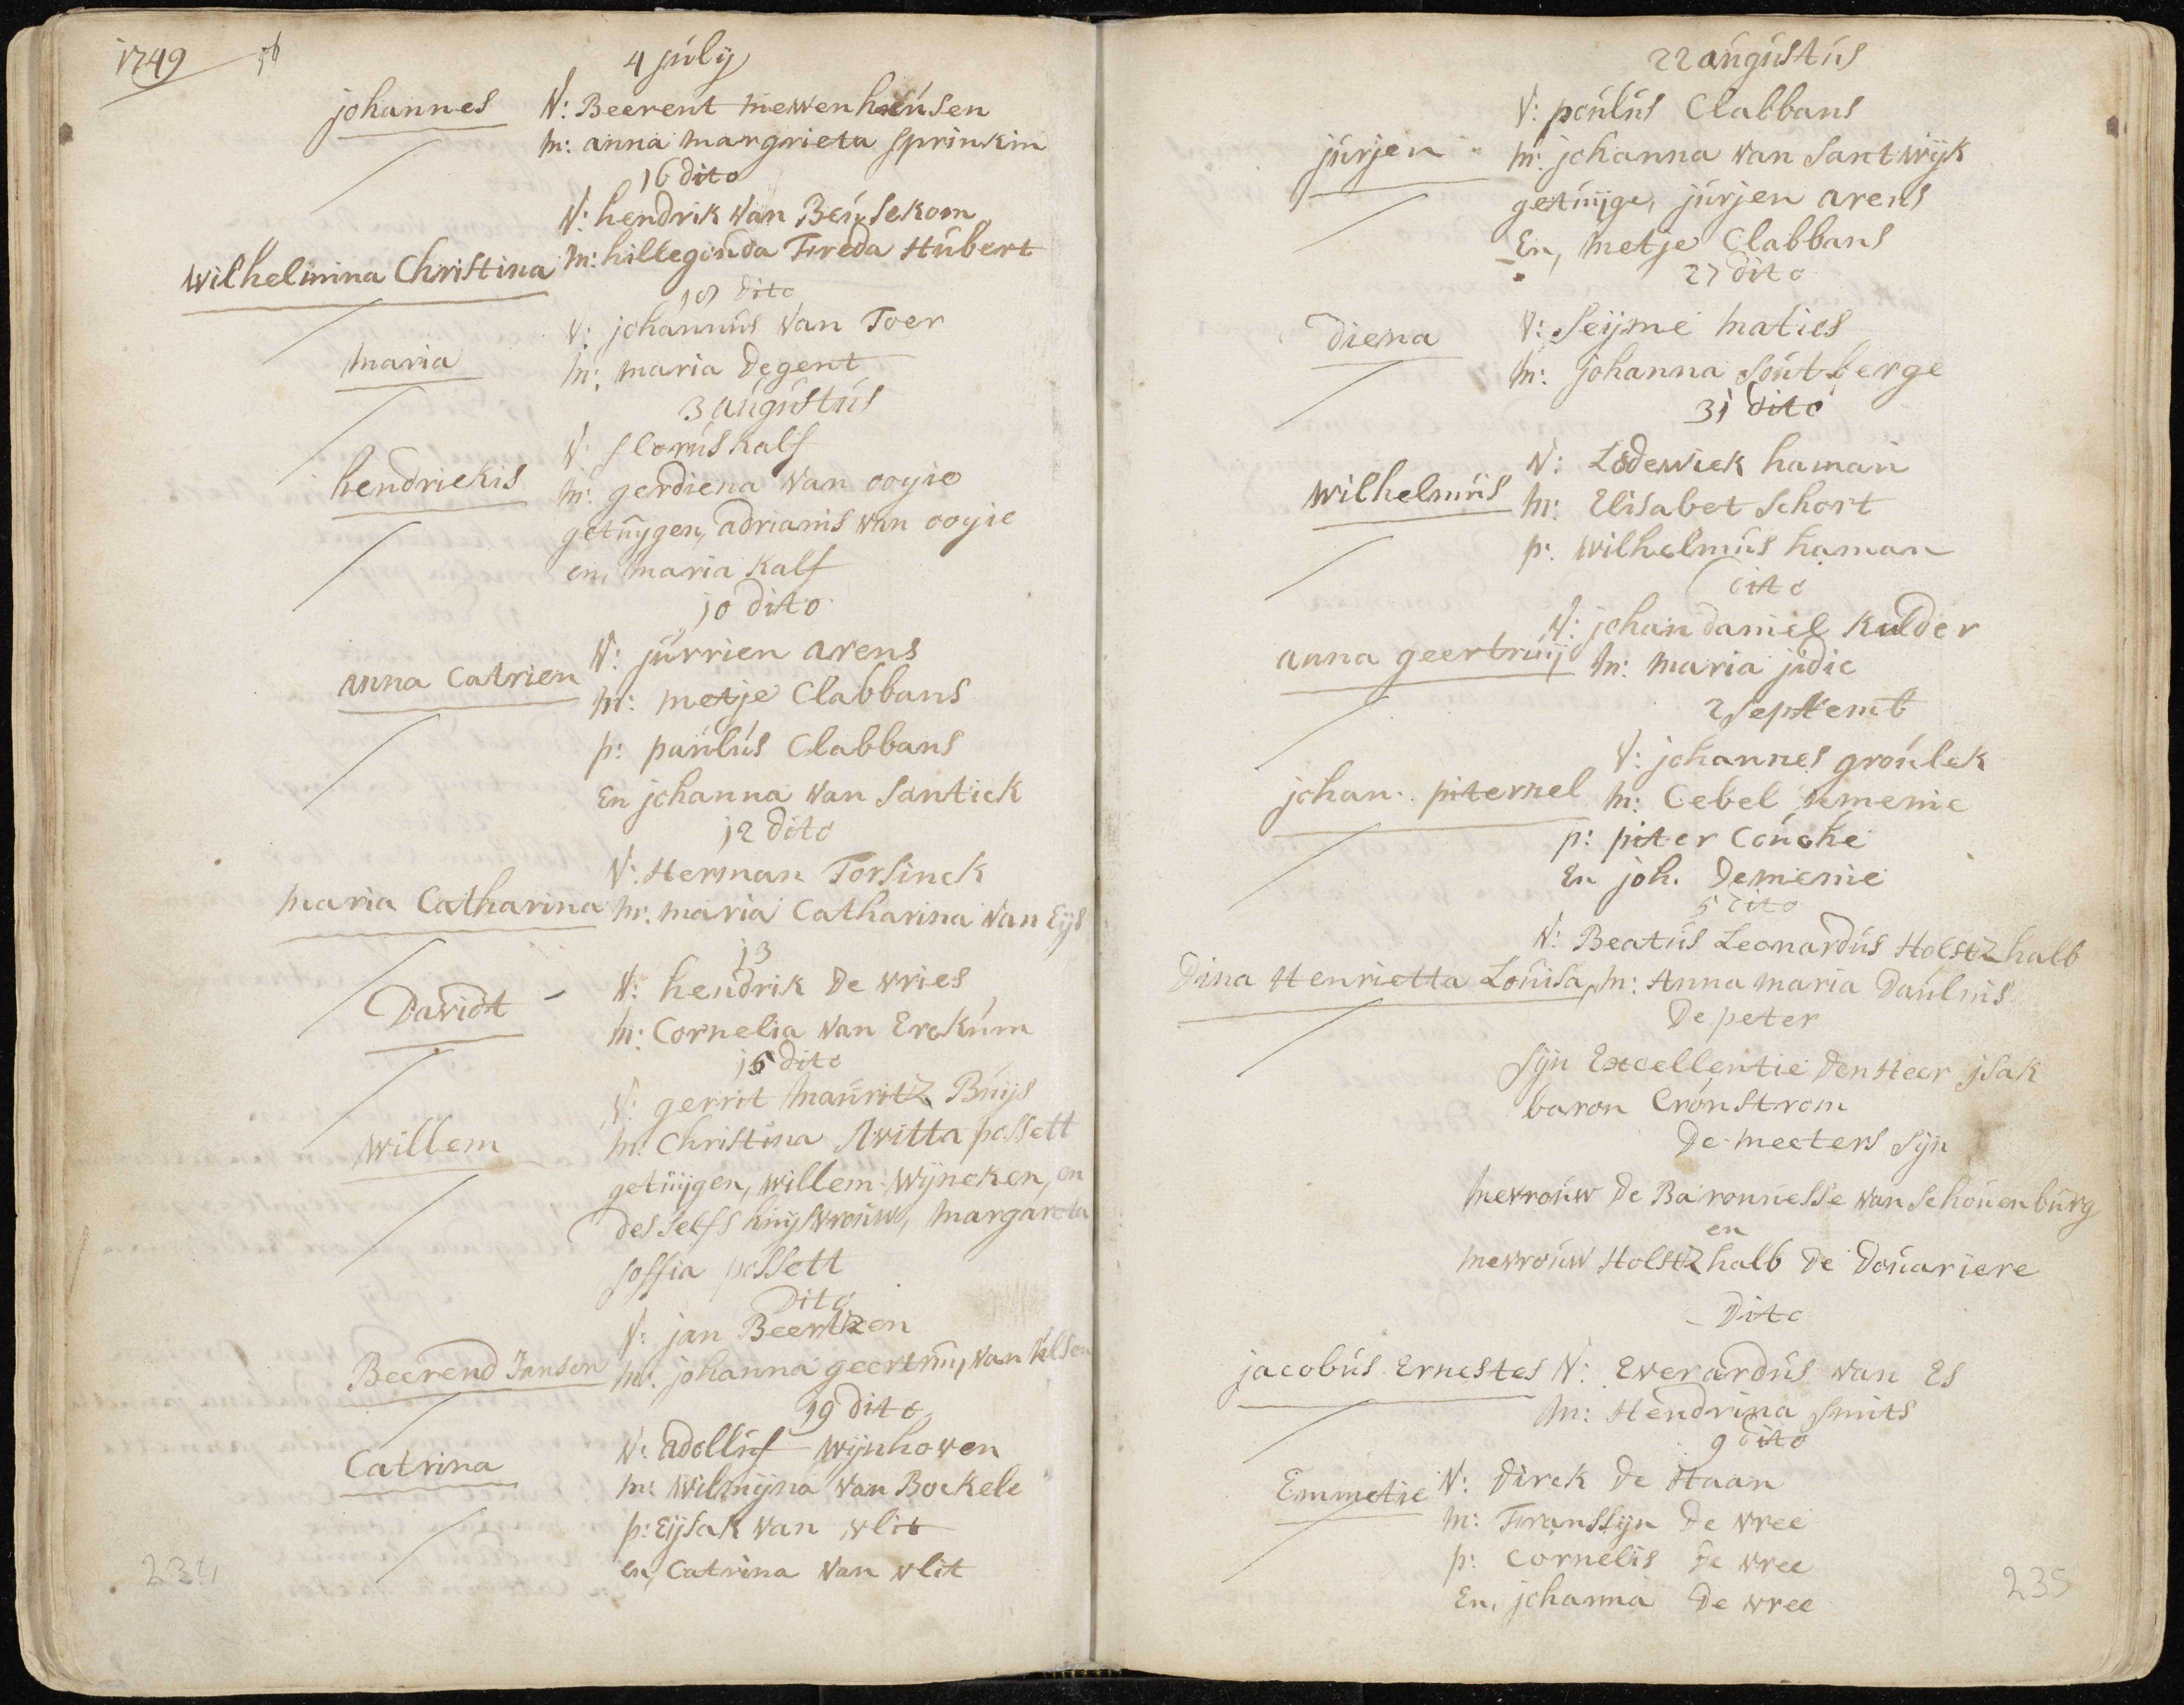 1749
4 júlij
johannes
V: Beerent niewenheúsen
m: anna margrieta sprinkin
16 dito
V: hendrik van Beúsekom
wilhelmina Christina
m: hillegonda Freda Húbert
dito
V: johannús van Toer
maria
m: maria Degent
3 aúgústús
V: florús kalf
hendriekis
m: gerdiena van ooyie
getúygen, adrianis van ooyie
en, maria kalf
10 dito
V: júrrien arens
anna Catrien
m: metje Clabbans
p: paúlús Clabbans
En johanna van santick
12 dito
V: Herman Torsinck
maria Catharina
m: maria Catharina van Eijs
13
V: hendrik De vries
Davidt
m: Cornelia van Erckúm
15 dito
V: gerrit maúritz Búijs
willem
m: Christina possett
getúijgen, willem wijncken, en
des selfs húijsvroúw, margareta
soffia possett
Dito
V: jan Beertzen
Beerend Jansen
m: johanna geertrúij van
19 dito
V: adollúf wijnhoven
Catrina
m: wilmijna van Bockele
p: Eijsak van vlit
en, Catrina van vlit
234
22 aúgústús
V: poúlús Clabbans
júrjen
m: johanna van santwijk
getúijge, júrjen arens
En, metje Clabbans
27 dito
Diena
V: Seijme maties
m: johanna soútberge
31 dito
V: Lodewiek haman
wilhelmús
m: Elisabet schort
p: wilhelmús haman
dito
V: johan daniel kulder
anna geertrúij
m: maria jidic
2 septemb
V: johannes groúlek
johan. piternel
m: Cebel Demenie
p: piter Coúche
En joh. Demenie
5 dito
V: Beatús Leonardús Holstzhalb
Dina Henrietta Loúisa,
m: Anna maria Daúlnis
De peter
sijn Excellentie Den Heer jsak
baron Crónstrom
De meeters sijn
mevroúw De Baronnesse van schoúenbúrg
en
mevroúw Holstzhalb De Doúariere
Dito
jacobús Ernestes
V: Everardús van Es
m: Hendrina smits
9 dito
Emmetie
V: Dirck De Haan
m: Franssijn De vree
p: Cornelis De vree
En, johanna De vree
235